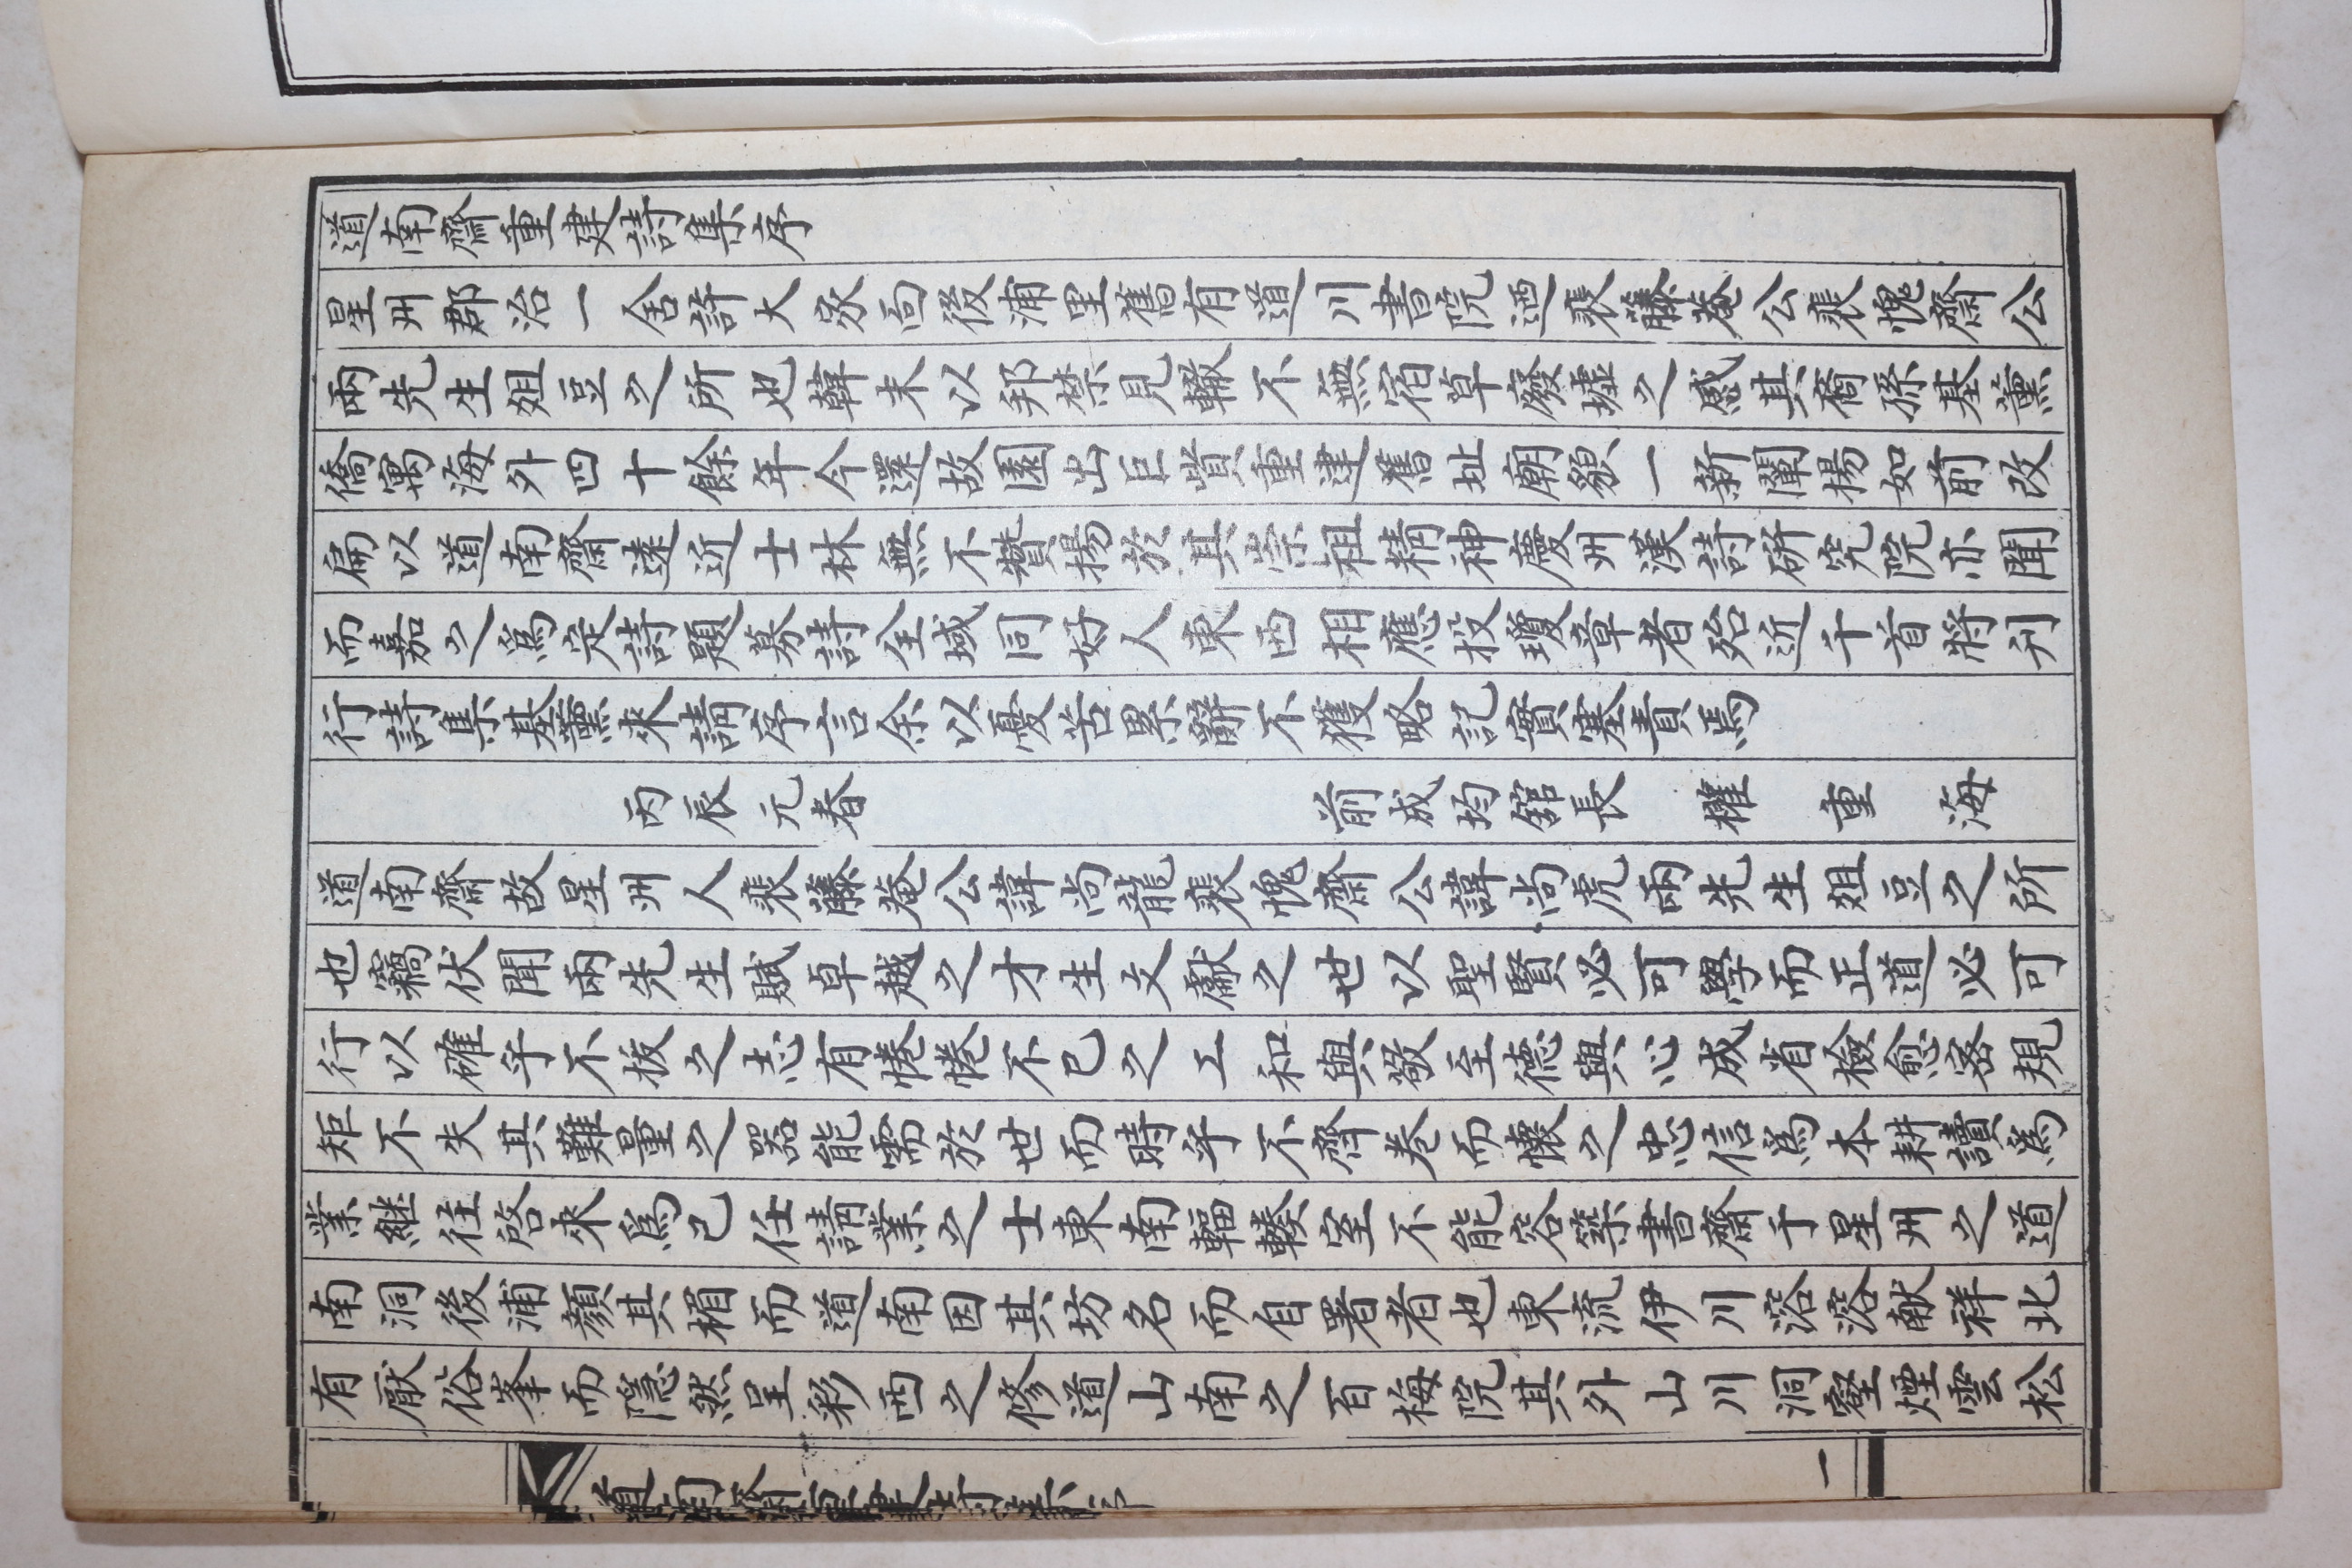 道南齋重建詩集序
星州郡治一舍許大家面後浦里舊有道川書院迺裵藤菴公裵愧齋公
兩先生俎豆之所也韓末以邦禁見轍不無宿草廢墟之感其裔孫基薰
僑寓海外四十餘年今還故園出巨貲重建舊址廟貌一新闡揚如前改
扁以道南齋遠近士林無不贊揚於其崇祖精神慶州漢詩硏究院亦聞
而嘉之爲定詩題募詩全域同好人東西相應投瓊章者殆近千首將刊
行詩集基薰來請序言余以憂苦累辭不獲略記實塞責焉
丙辰元春 前成均館長 權重海
道南齋故星州人裵藤菴公諱尙龍裵愧齋公諱尙虎兩先生俎豆之所
也竊伏聞兩先生賦卓越之才生文獻之世以聖賢必可學而正道必可
行以確乎不拔之志有惓惓不已之工和與敬至德與心成省檢愈密規
矩不失其難量之器能需於世而時乎不齊卷而懷之忠信爲本耕讀爲
業継往啓來爲己任請業之士東南輻輳室不能容築書齋于星州之道
南洞後浦顔其楣而道南因其坊名而自署者也東流伊川溶溶献祥北
有厭俗峯而隱然呈彩西之修道山南之百梅院其外山川洞壑煙雲松
道南齋重建詩集序 一